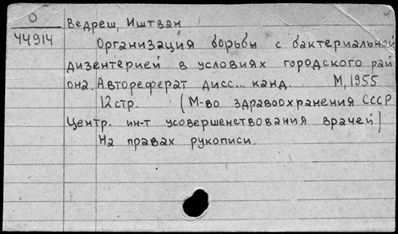 О
44914
Ведреш, Иштван
Организация борьбы с бактериальной
дизентерией в условиях городского рай
она. Автореферат дисс... канд. М, 1955
12 стр. (М-во здравоохранения СССР
Центр. ин-т усовершенствования врачей)
На правах рукописи.